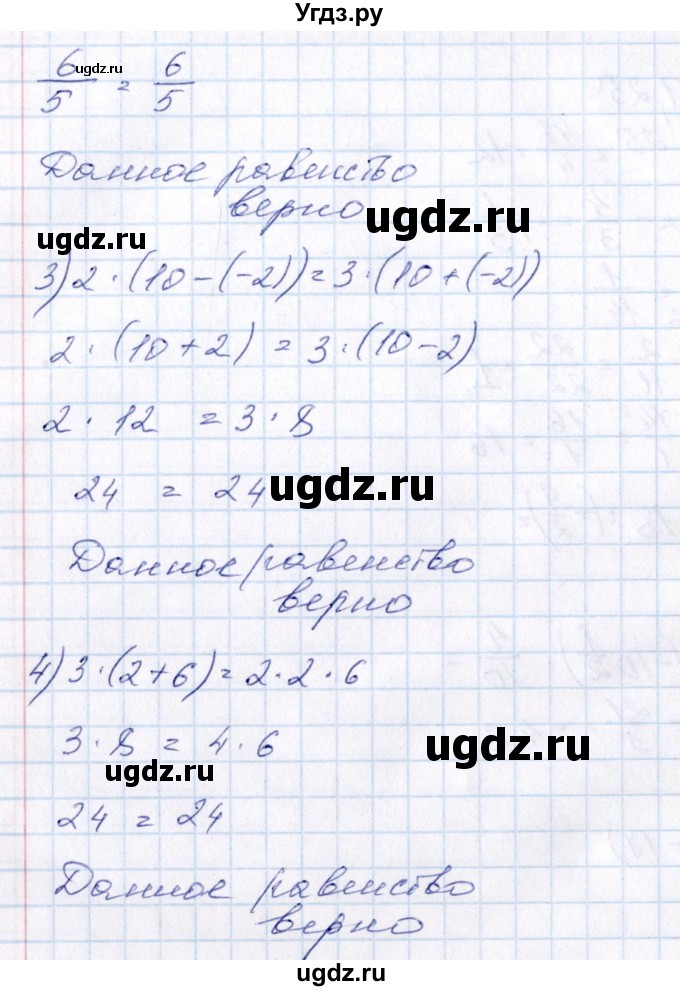 Угдз.ру
ugdz.ru
6/5 = 6/5
Данное равенство
верно
ugdz.ru
ugdz.ru
3) 2 · (10 - (-2)) = 3 · (10 + (-2))
2 · (10 + 2) = 3 · (10 - 2)
2 · 12 = 3 · 8
24 = 24
ugdz.ru
Данное равенство
верно
4) 3 · (2 + 6) = 2 · 2 · 6
3 · 8 = 4 · 6
ugdz.ru
ugdz.ru
24 = 24
Данное равенство
верно
ugdz.ru